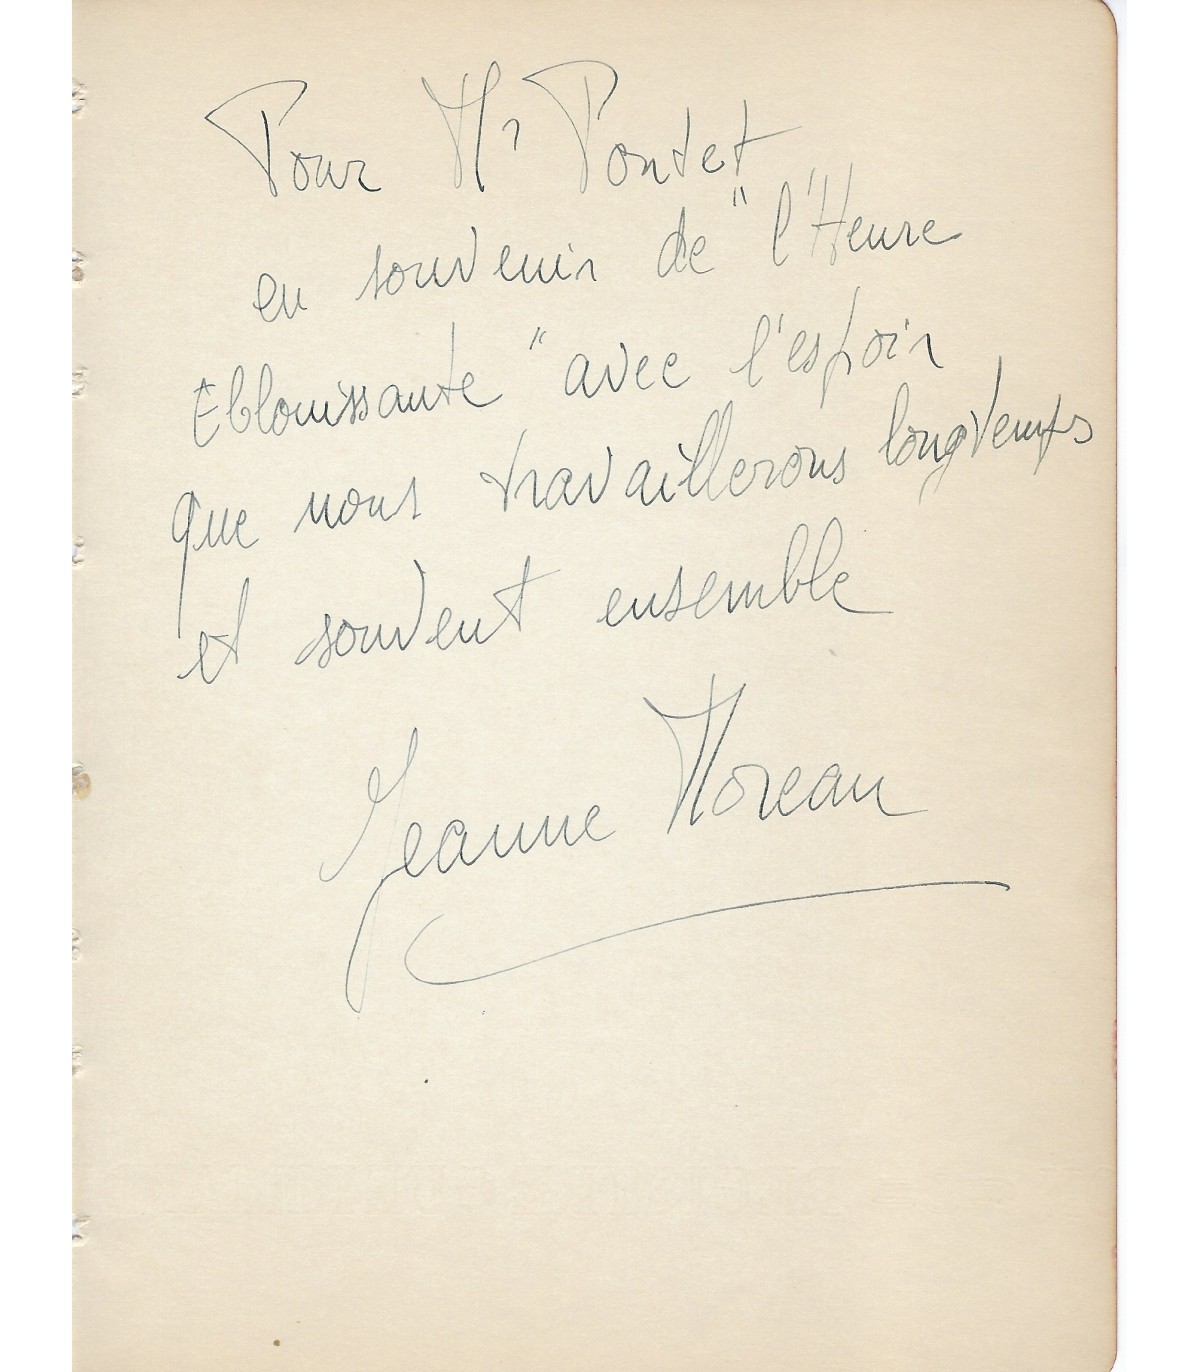 Pour Mr Pontet
en souvenir de "l'Heure
Eblouissante" avec l'espoir
que nous travaillerons longtemps
et souvent ensemble
Jeanne Moreau